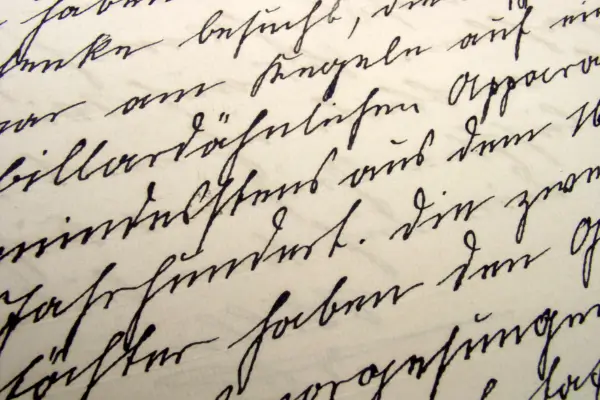 haben
besucht, die
war am Kegeln auf
billardähnlichen Appara
mindestens aus dem 16
Jahrhundert. Die zwe
Töchter haben den G
vorgesungen